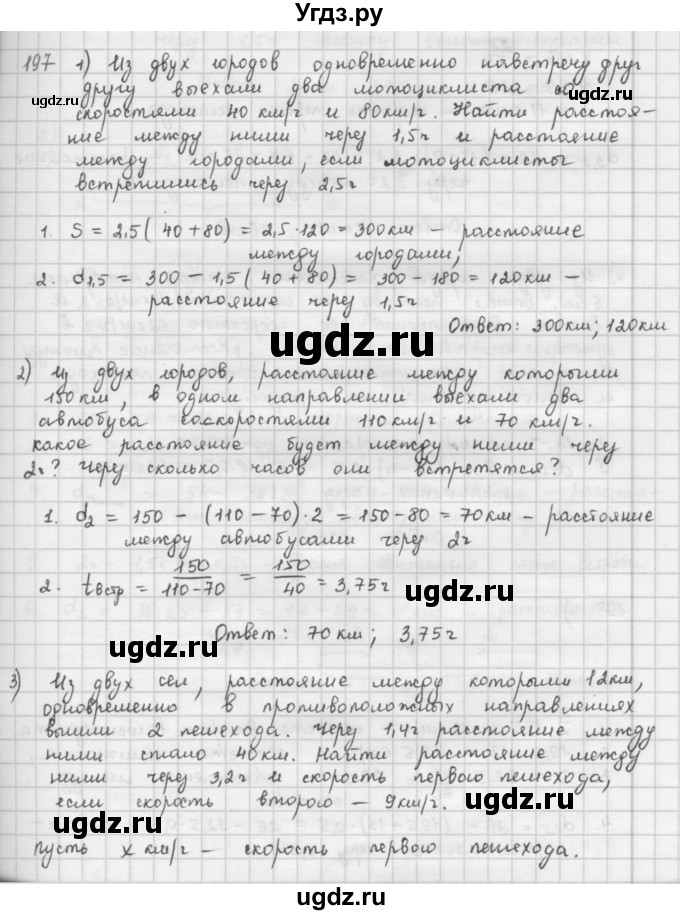 Угдз.ру
197 1) Из двух городов одновременно навстречу друг
другу выехали два мотоциклиста со
скоростями 40 км/ч и 80 км/ч. Найти расстоя-
ние между ними через 1,5ч и расстояние
между городами, если мотоциклисты
встретились через 2,5ч
1. S = 2,5( 40 + 80) = 2,5 · 120 = 300 км – расстояние
между городами;
2. d1,5 = 300 – 1,5( 40 + 80) = 300 – 180 = 120 км –
расстояние через 1,5ч
Ответ: 300 км; 120 км
2) Из двух городов, расстояние между которыми
150 км, в одном направлении выехали два
автобуса со скоростями 110 км/ч и 70 км/ч.
какое расстояние будет между ними через
2ч? Через сколько часов они встретятся?
1. d2 = 150 – (110 – 70) · 2 = 150 – 80 = 70 км – расстояние
между автобусами через 2ч
2. tвстр = 150/(110-70) = 150/40 = 3,75 ч
Ответ: 70 км; 3,75 ч
3) Из двух сел, расстояние между которыми 12 км,
одновременно в противоположных направлениях
вышли 2 пешехода. Через 1,4ч расстояние между
ними стало 40 км. Найти расстояние между
ними через 3,2ч и скорость первого пешехода,
если скорость второго – 9 км/ч.
пусть x км/ч – скорость первого пешехода.
ugdz.ru
ugdz.ru
ugdz.ru
ugdz.ru
ugdz.ru
ugdz.ru
ugdz.ru
ugdz.ru
ugdz.ru
ugdz.ru
ugdz.ru